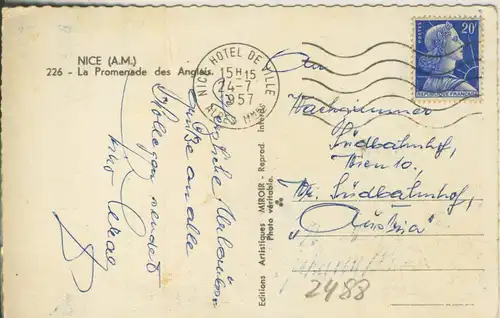 NICE (A.M.)
226 - La Promenade des Anglais.
NICE HOTEL DE VILLE
15H15
24-7
1957
ALPES MMES
20F
POSTES
REPUBLIQUE FRANÇAISE
An
Wachzimmer
Südbahnhof,
Wien 10.
Südbahnhof,
"Austria"
Herzliche Urlaubs
grüße an alle
Kollegen sendet
Editions Artistiques MIROIR - Reprod. Interdite
Photo véritable.
2488